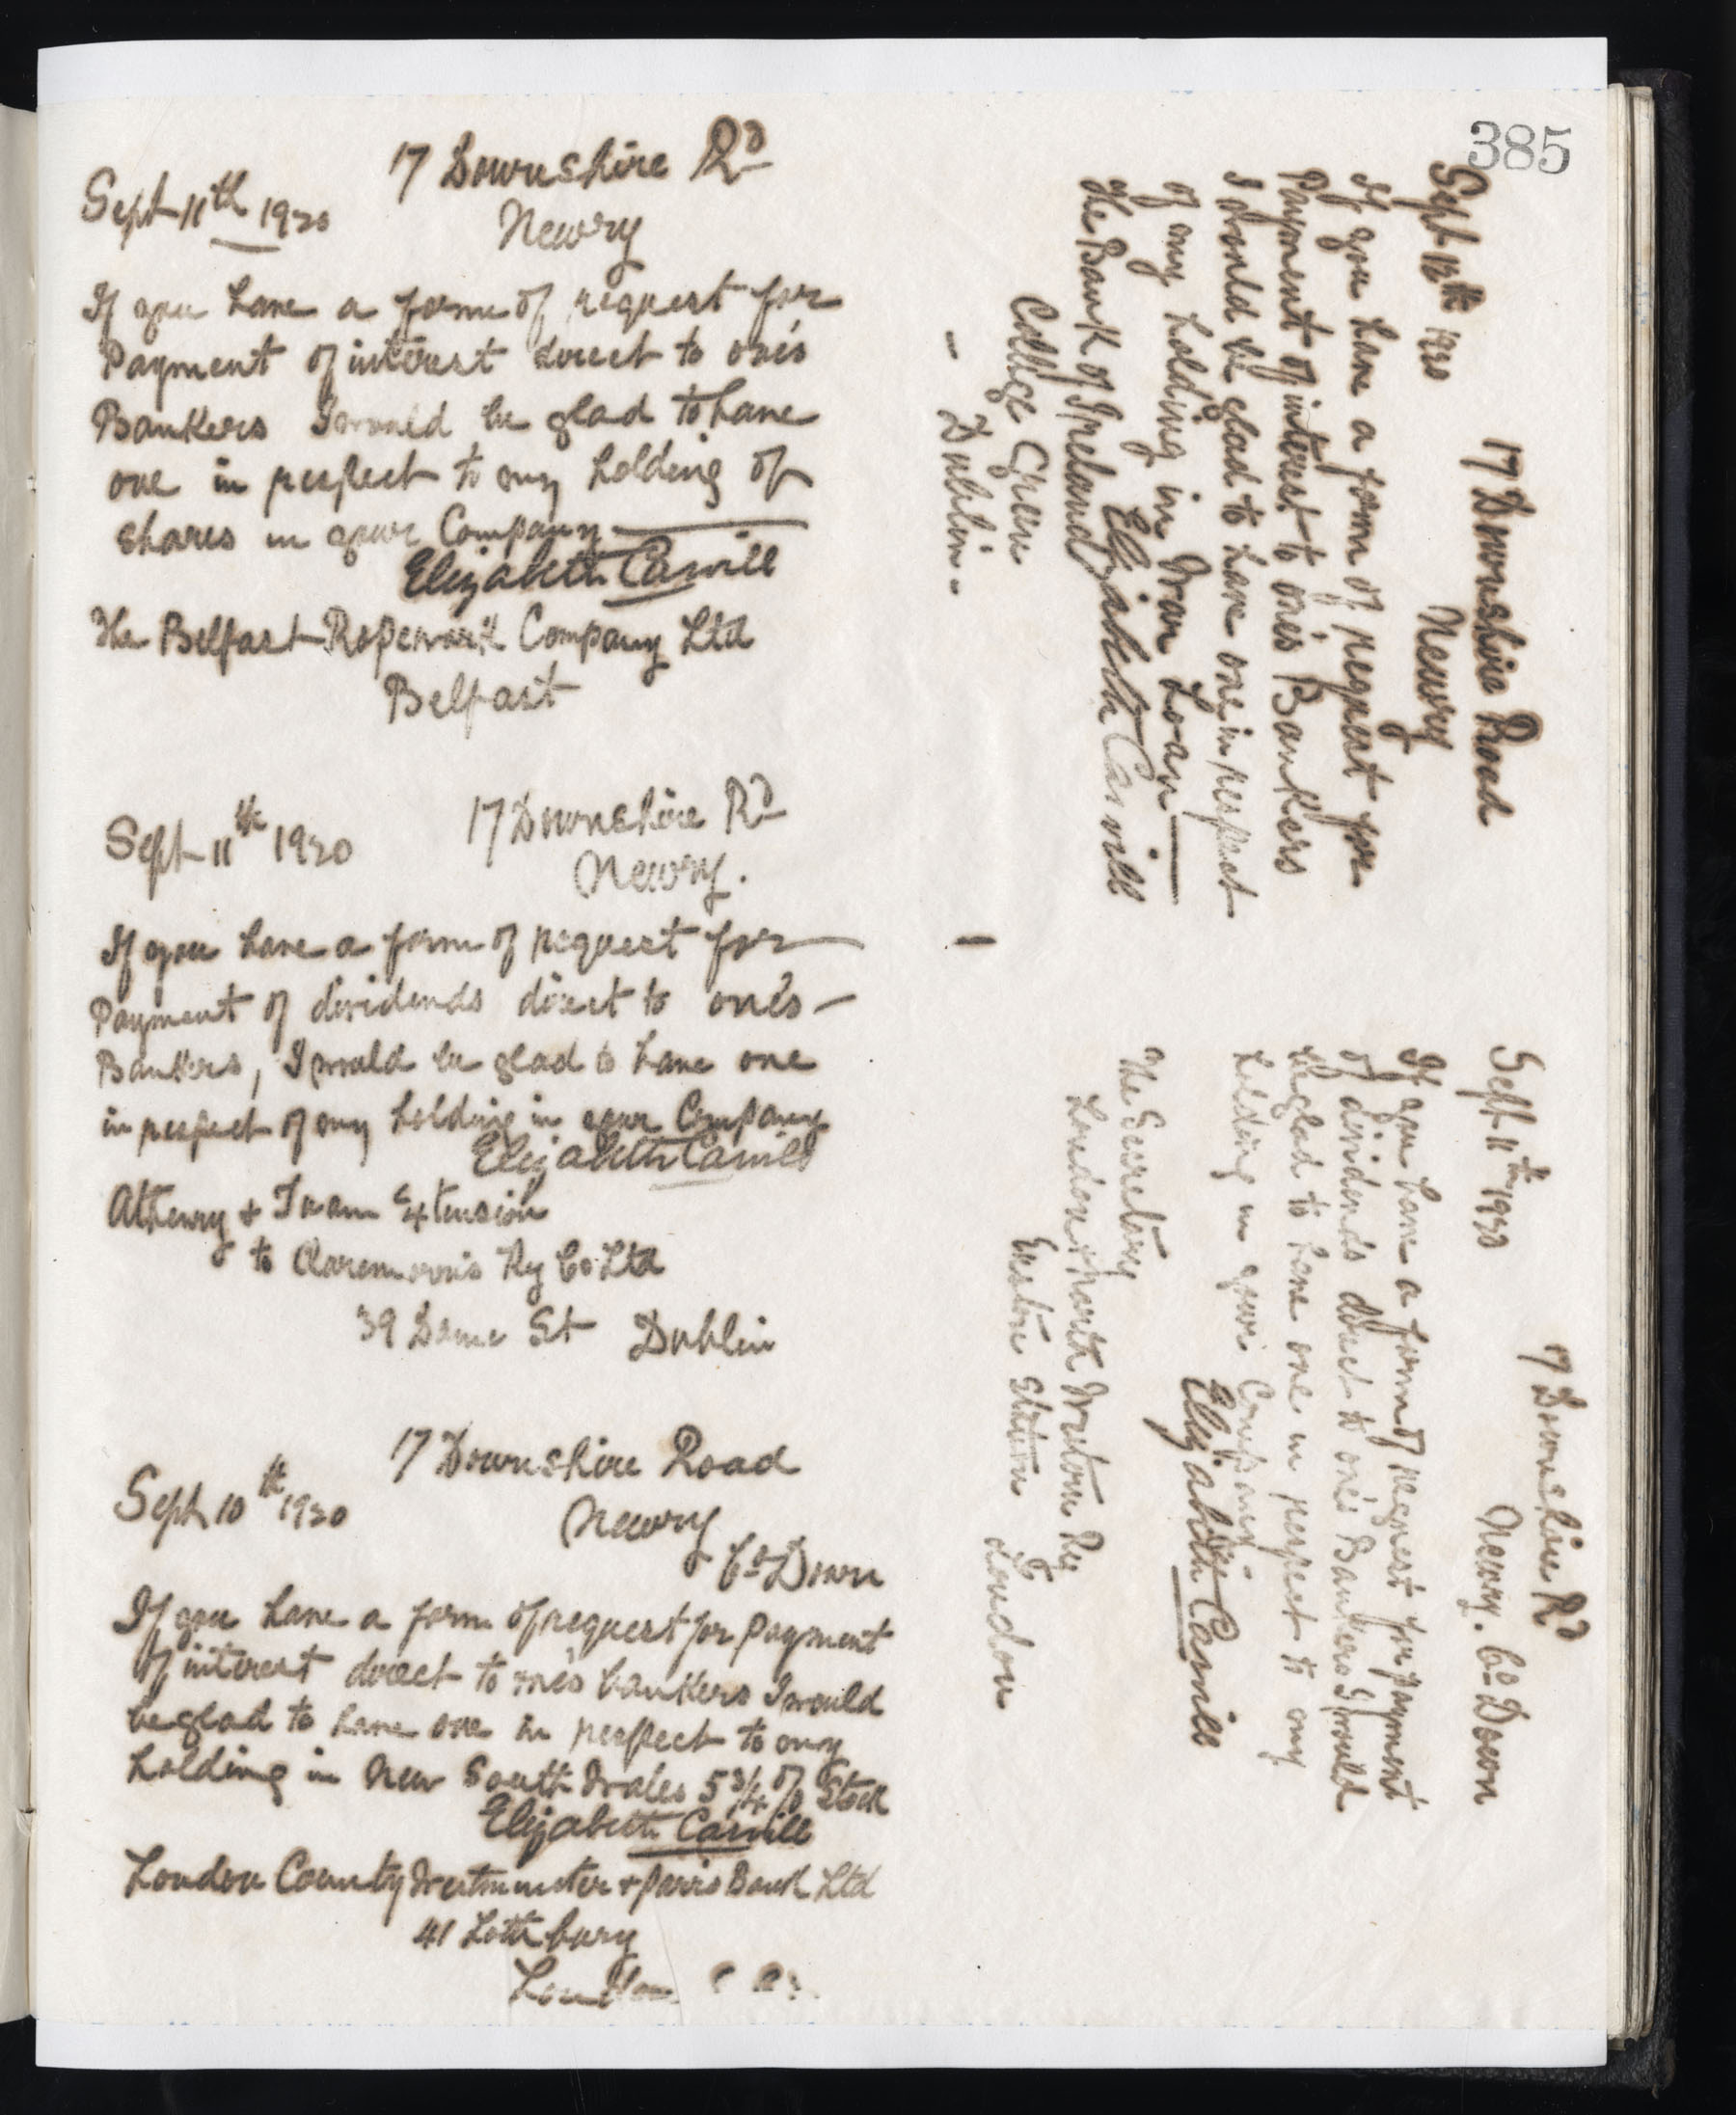 385
17 Downshire Rd
Sept 11th 1920
Newry
If you have a form of request for
Payment of interest direct to one's
Bankers I would be glad to have
one in respect to my holding of
shares in your Company
Elizabeth Carvill
The Belfast Ropework Company Ltd
Belfast
17 Downshire Rd
Sept 11th 1920
Newry.
If you have a form of request for
Payment of dividends direct to one's
Bankers, I would be glad to have one
in respect of my holding in your Company
Elizabeth Carvill
Athenry & Tuam Extension
to Claremorris Ry Co Ltd
39 Dame St Dublin
17 Downshire Road
Sept 10th 1920
Newry
Co Down
If you have a form of request for payment
of interest direct to one's bankers I would
be glad to have one in respect to my
holding in New South Wales 5 3/4 % Stock
Elizabeth Carvill
London County Westminster & Parrs Bank Ltd
41 Lothbury
London
17 Downshire Road
Newry
Sept 13th 1920
If you have a form of request for
Payment of interest to one's Bankers
I would be glad to have one in respect
of my holding in War Loan
Elizabeth Carvill
The Bank of Ireland
College Green
Dublin
17 Downshire Rd
Newry. Co Down
Sept 11th 1920
If you have a form of request for payment
of dividends direct to one's Bankers I would
be glad to have one in respect to my
holding in your Company.
Elizabeth Carvill
The Secretary
London & North Western Ry
Euston Station London